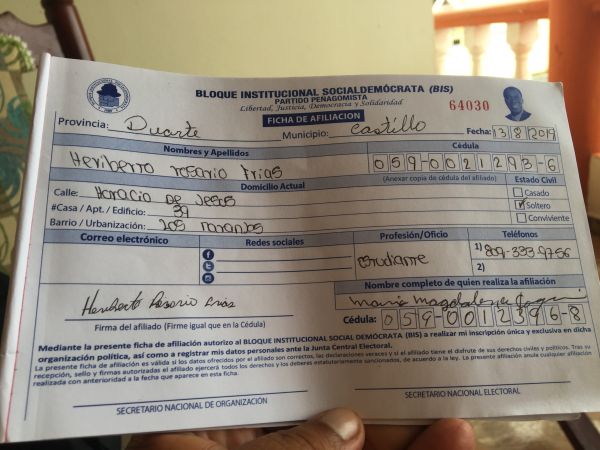 BLOQUE INSTITUCIONAL SOCIALDEMÓCRATA (BIS)
PARTIDO PEÑAGOMISTA
Libertad, Justicia, Democracia y Solidaridad
64030
FICHA DE AFILIACION
Provincia: Duarte Municipio: Castillo Fecha: 13/8/2019
Nombres y Apellidos Cédula
Heriberro rosario Frias 059-0021293-6
Domicilio Actual (Anexar copia de cédula del afiliado) Estado Civil
Calle: Horacio De Jesos Casado
#Casa / Apt. / Edificio: 39 Soltero
Barrio / Urbanización: Los naranjos Conviviente
Correo electrónico Redes sociales Profesión/Oficio Teléfonos
Estudiante 1) 809-333-9756
2)
Nombre completo de quien realiza la afiliación
Heriberto Rosario Frias Maria Magdalena
Firma del afiliado (Firme igual que en la Cédula) Cédula: 059-0012396-8
Mediante la presente ficha de afiliación autorizo al BLOQUE INSTITUCIONAL SOCIAL DEMÓCRATA (BIS) a realizar mi inscripción única y exclusiva en dicha
organización política, así como a registrar mis datos personales ante la Junta Central Electoral.
La presente ficha de afiliación es válida si los datos ofrecidos por el afiliado son correctos, las declaraciones veraces y si el afiliado tiene el disfrute de sus derechos civiles y políticos. Tras su
recepción, sello y firmas autorizadas el afiliado ejercerá todos los derechos y los deberes estatutariamente sancionados, de acuerdo a la ley. La presente afiliación anula cualquier afiliación
realizada con anterioridad a la fecha que aparece en esta ficha.
SECRETARIO NACIONAL DE ORGANIZACIÓN SECRETARIO NACIONAL ELECTORAL